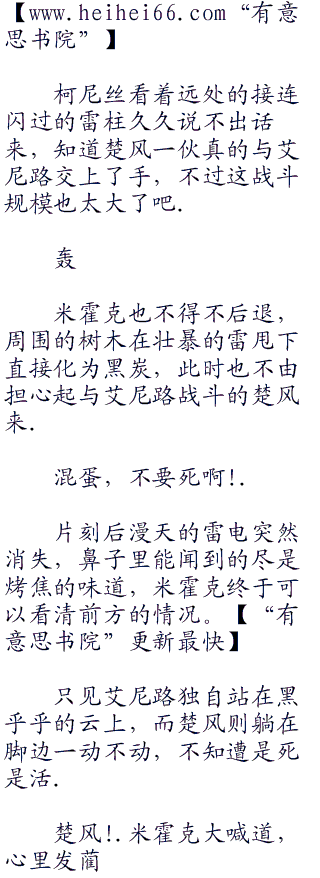 【www.heihei66.com“有意
思书院”】
柯尼丝看着远处的接连
闪过的雷柱久久说不出话
来，知道楚风一伙真的与艾
尼路交上了手，不过这战斗
规模也太大了吧.
轰
米霍克也不得不后退，
周围的树木在壮暴的雷甩下
直接化为黑炭，此时也不由
担心起与艾尼路战斗的楚风
来.
混蛋，不要死啊!.
片刻后漫天的雷电突然
消失，鼻子里能闻到的尽是
烤焦的味道，米霍克终于可
以看清前方的情况。【“有
意思书院”更新最快】
只见艾尼路独自站在黑
乎乎的云上，而楚风则躺在
脚边一动不动，不知遭是死
是活.
楚风!.米霍克大喊道，
心里发蔺